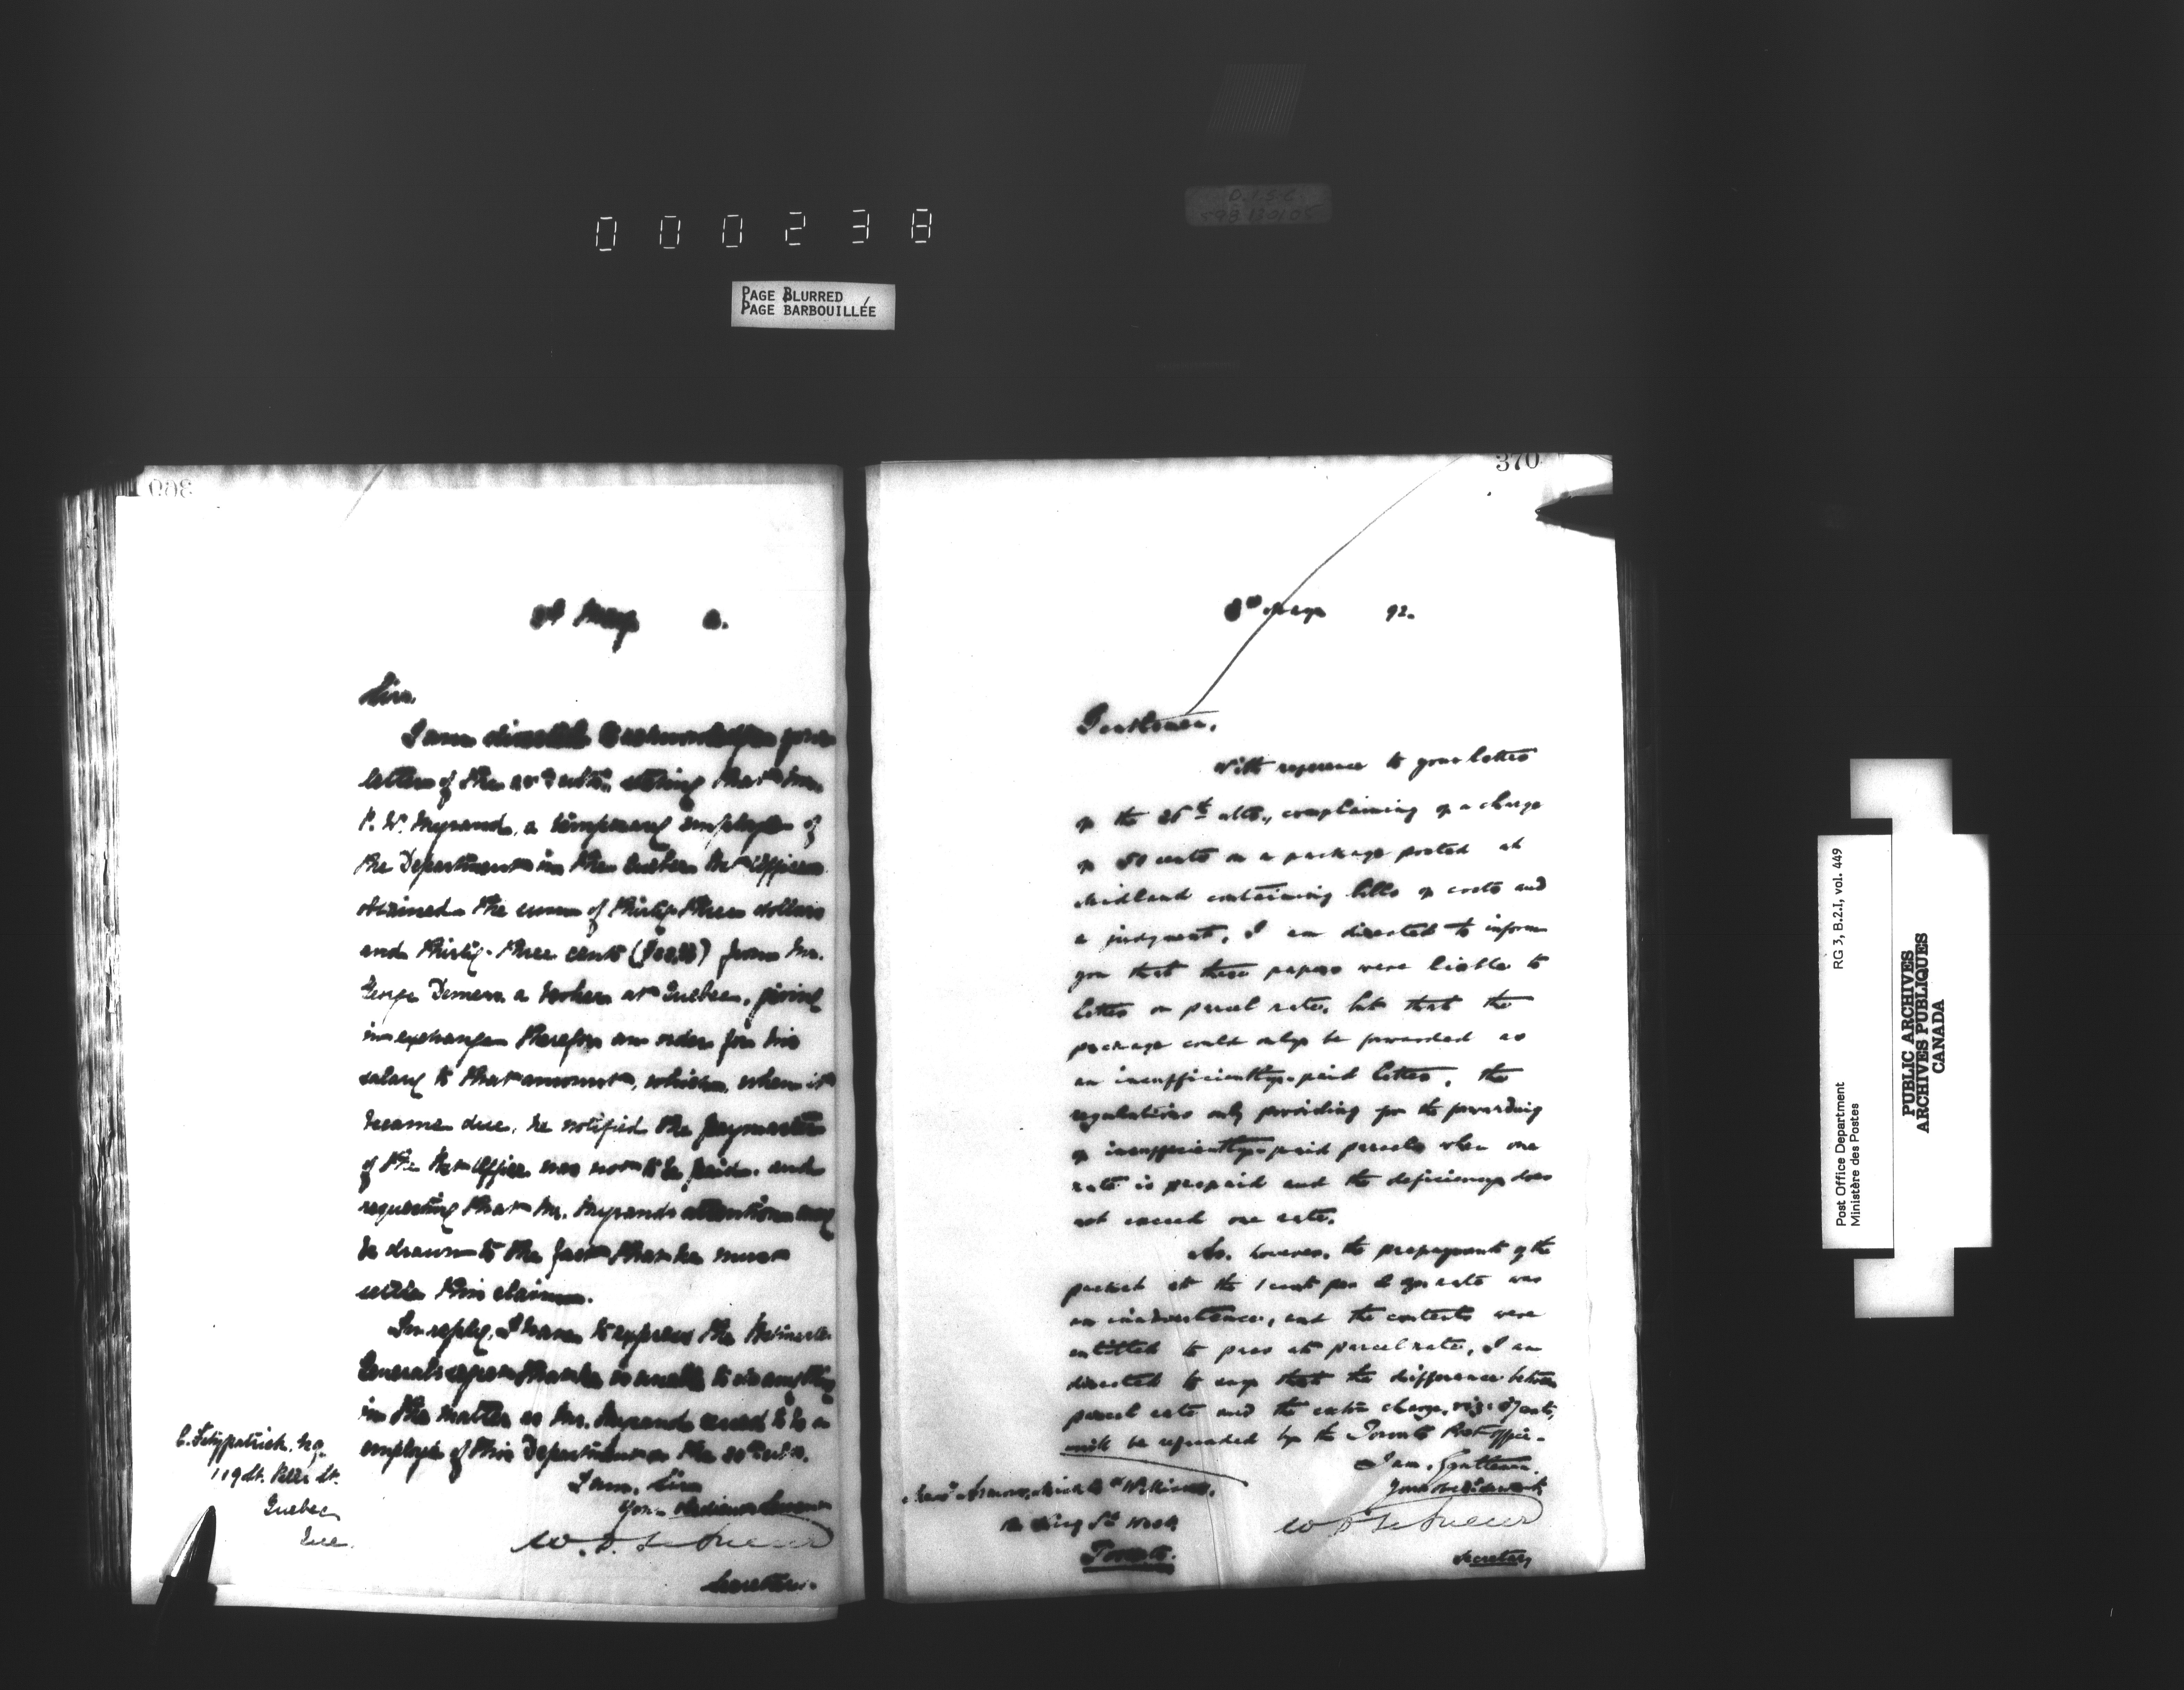 000238
PAGE BLURRED
PAGE BARBOUILLÉE
May
Sir,
I am directed to acknowledge your
letter of the ulto. stating that Mr.
P. W. Myrand, a temporary employé of
the Department in the Quebec Post Office
obtained the sum of thirty-three dollars
and thirty-three cents ($33.33) from Mr.
George Demers a broker at Quebec, giving
in exchange therefor an order for his
salary to that amount, which, when it
became due, he notified the paymaster
of the Post Office was not to be paid, and
requesting that Mr. Myrand's attention may
be drawn to the fact that he must
settle this claim.
In reply, I have to express the Postmaster
General's regret that he is unable to do anything
in the matter as Mr. Myrand ceased to be an
employé of this Department on the 30th ulto.
I am, Sir
Your obedient Servant
W. D. LeSueur
Secretary.
C. Fitzpatrick, Esq.
119 St. Peter St.
Quebec
Que.
370
May 92.
Gentlemen,
With reference to your letter
of the 26th ulto., complaining of a charge
of 50 cents on a package posted at
Midland containing bills of costs and
a judgment, I am directed to inform
you that these papers were liable to
letter or parcel rate, but that the
package could only be forwarded as
an insufficiently-paid letter, the
regulations only providing for the forwarding
of insufficiently-paid parcels when one
rate is prepaid and the deficiency does
not exceed one rate.
As, however, the prepayment of the
packet at the 1 cent per 2 ozs rate was
an inadvertence, and the contents were
entitled to pass at parcel rate, I am
directed to say that the difference between
parcel rate and the extra charge, viz: cents,
will be refunded by the Toronto Post Office.
I am, Gentlemen,
Your obedient servant,
W D LeSueur
Secretary
King St. West
Toronto.
RG 3, B.2.I, vol. 449
Post Office Department
Ministère des Postes
PUBLIC ARCHIVES
ARCHIVES PUBLIQUES
CANADA